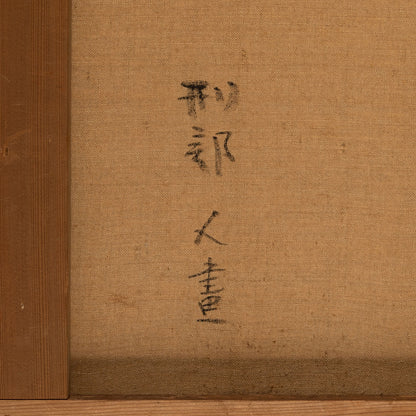 刑部人畫